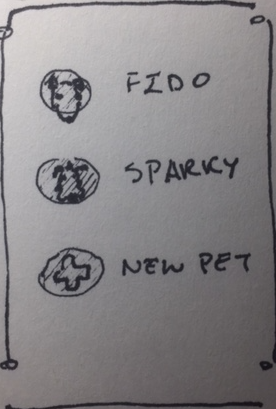 FIDO
SPARKY
NEW PET